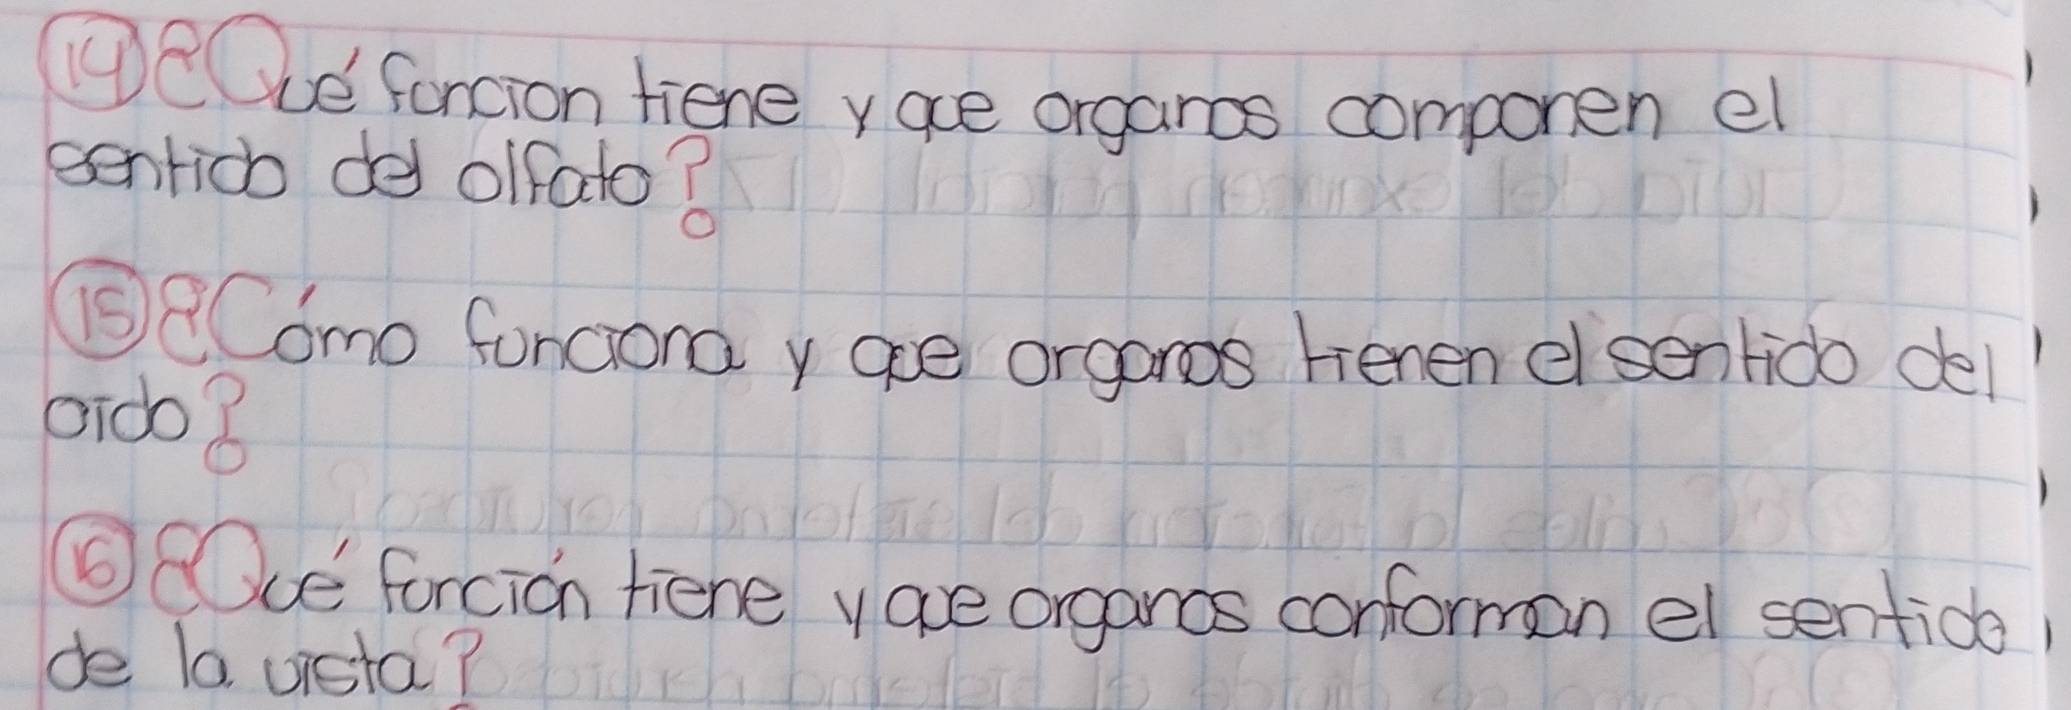 14 ¿Qué funcion tiene y que organos componen el
sentido del olfato?
15 ¿Cómo funciona y que organos tienen el sentido del
oido?
16 ¿Qué función tiene y que organos conforman el sentido
de la vista?